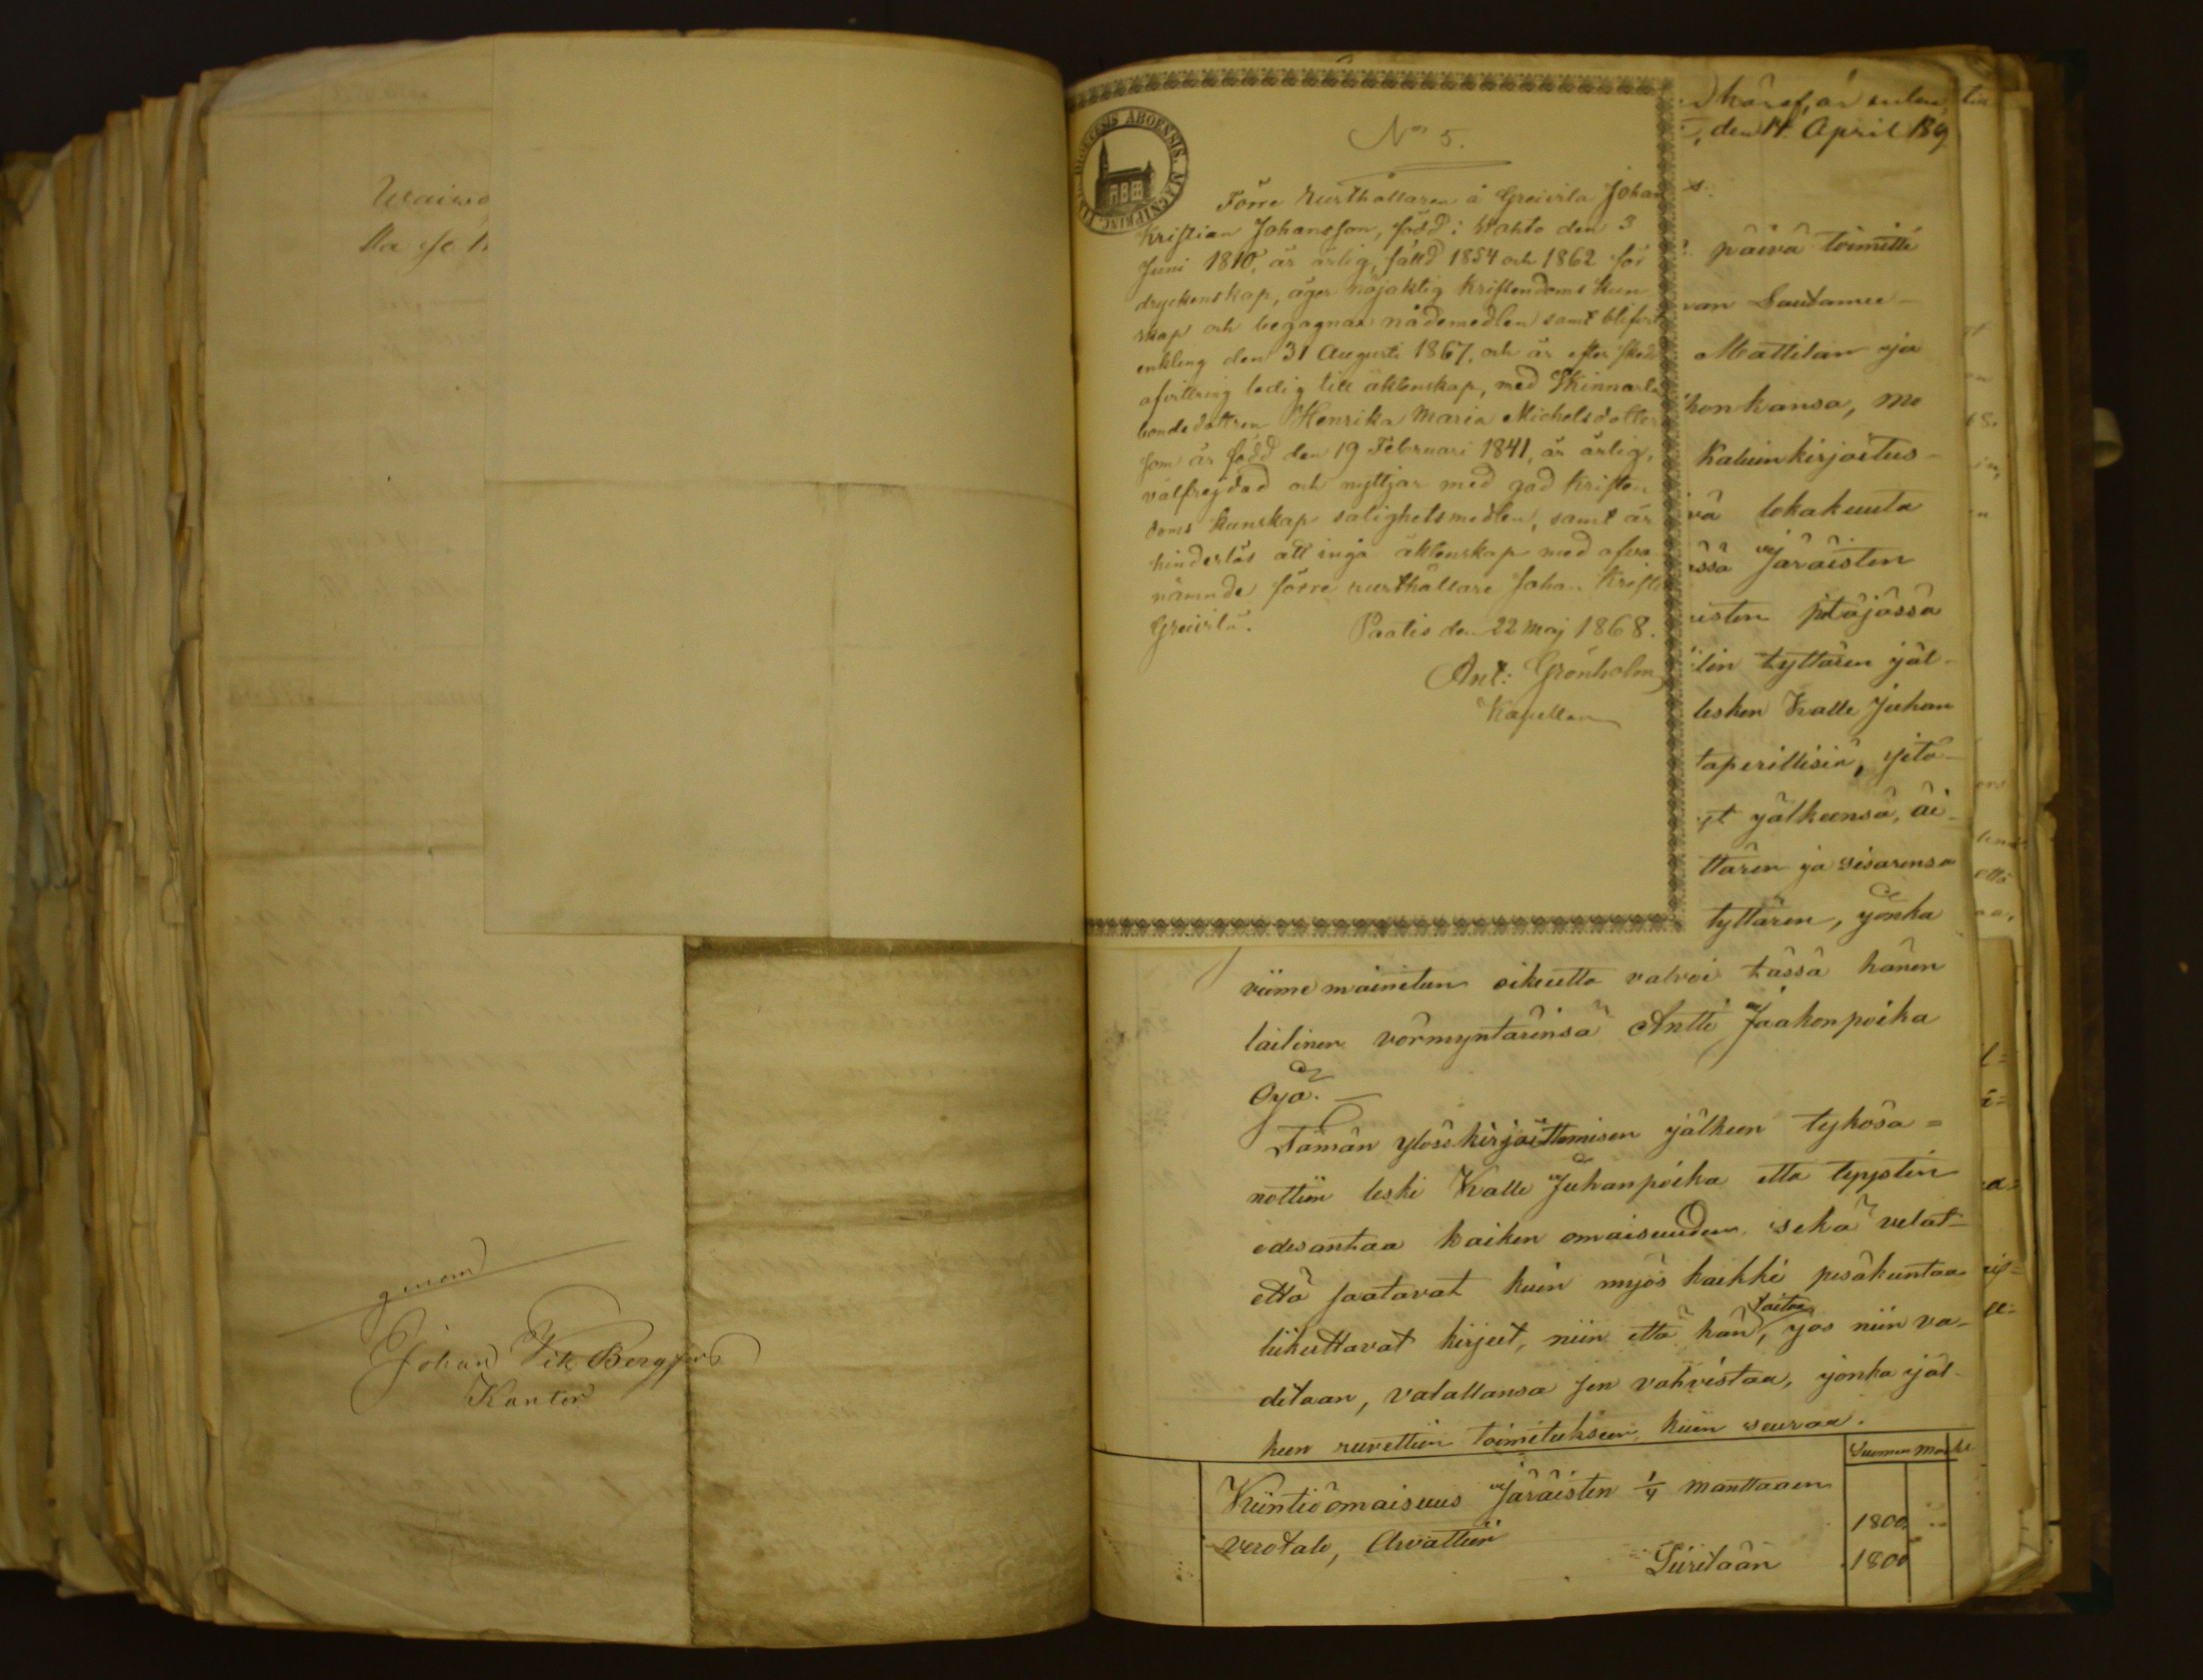 Waiwa
lla se k
genom
Johan Vik Bergfors
Kantor
DIOECESIS ABOENSIS. MAGNI PRINC.
No 5.
Förre Rusthållaren å Greivilä Johan
Kristian Johansson, född i Wahto den 3
Juni 1810, är ärlig, fälld 1854 och 1862 för
dryckenskap, äger nöjaktig kristendoms kun
skap och begagnar nådemedlen samt blifvit
enkling den 31 Augusti 1867, och är efter skedd
afvittring ledig till äktenskap, med Skinnarla
bondedottren Henrika Maria Michelsdotter
som är född den 19 Februari 1841, är ärlig,
välfrejdad och nyttjar med god kristen
doms kunskap salighetsmedlen, samt är
hinderlös att ingå äktenskap med ofvan
nämnde förre rusthållare Johan Kristi
Greivilä.
Paatis den 22 Maj 1868.
Ant: Grönholm
Kapellan
, den 14 April 189
päivä toimitti
van Lautamie-
Mattilan ja
honkansa, mo
Kaluinkirjoitus-
vä lokakuuta
ässä Järäisten
isten pitäjässä
ilin tyttären jäl-
lesken Kalle Juhan
taperillisiä, sitä-
yt jälkeensä, äi-
ttären ja sisarensa
tyttären, jonka
viimemainitun oikeutta valvoi tässä hänen
lailinen vörmyntärinsä Antti Jaakonpoika
Oja.
Tämän ylöskirjoittamisen jälkeen tykösa=
nottiin leski Kalle Juhanpoika että tyystin
edesantaa kaiken omaisuuden sekä velat
että saatavat kuin myös kaikki pesäkuntaa
liikuttavat kirjeet, niin että hän taitaa, jos niin va-
ditaan, valallansa sen vahvistaa, jonka jäl-
keen ruvettiin toimitukseen kuin seuraa.
Suomen Markk
Kiintiöomaisuus Järäisten 1/4 manttaaen
verotalo, Arvattiin 1800 "
Siiretään 1800